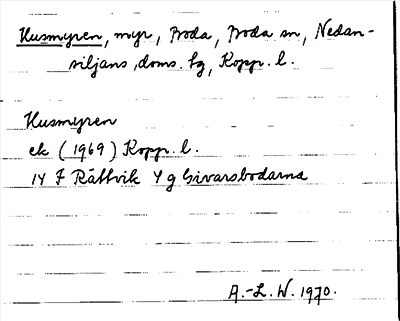 Husmyren, myr, Boda, Boda sn, Nedan-
siljans, doms. hg, Kopp. l.
Husmyren
ek (1969) Kopp. l.
14 F Rättvik 4 g Givarsbodarna
A.-L. W. 1970.